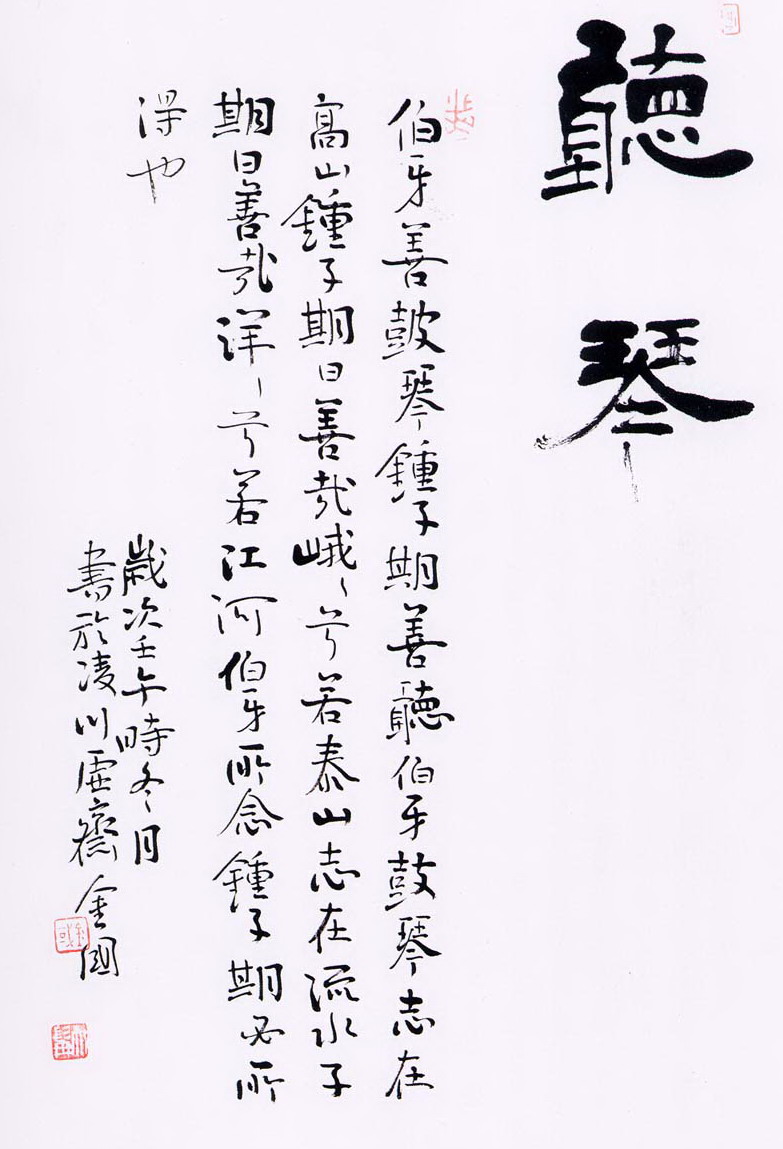 聽琴
伯牙善鼓琴鍾子期善聽伯牙鼓琴志在
高山鍾子期曰善哉峨々兮若泰山志在流水子
期曰善哉洋々兮若江河伯牙所念鍾子期必所
得也
歲次壬午時冬月
書於凌川虛齋金國